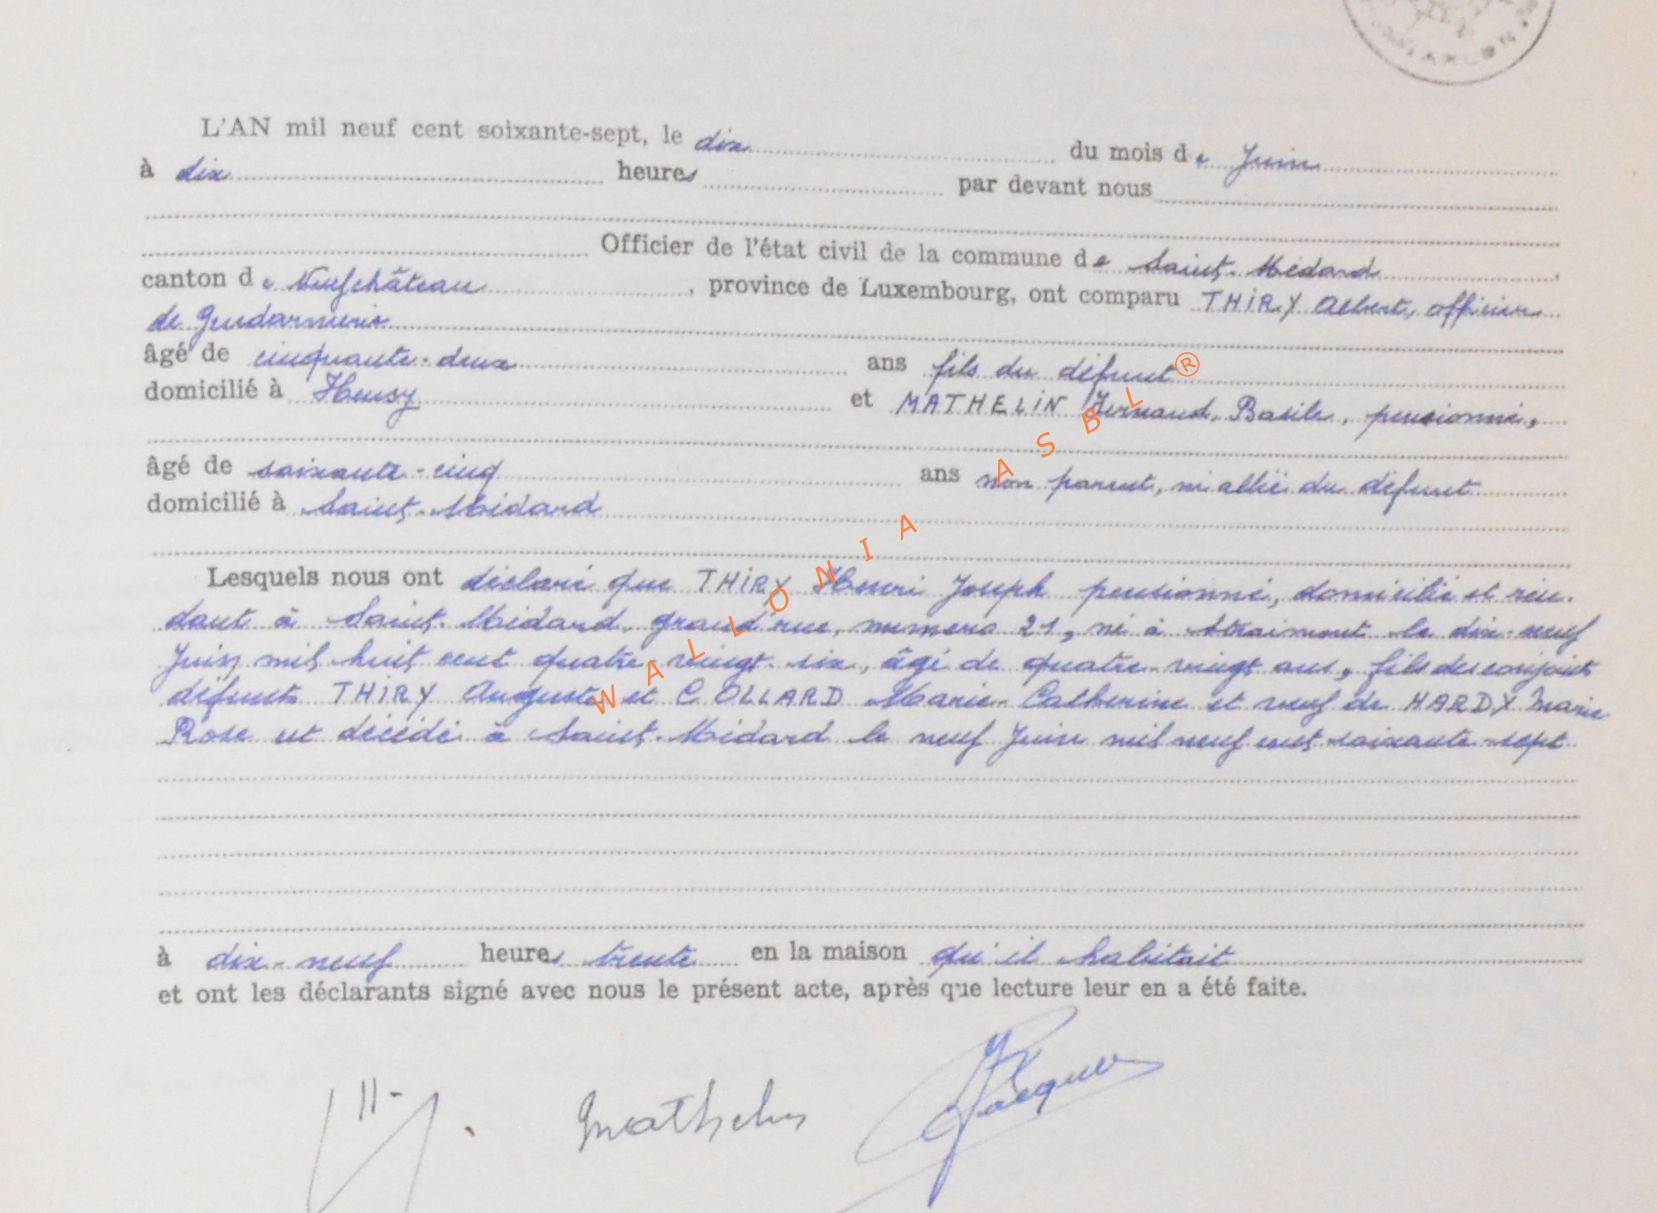 ARLON
L'AN mil neuf cent soixante-sept, le dix du mois de Juin
à dix heures par devant nous
Officier de l'état civil de la commune de Saint-Médard,
canton de Neufchâteau, province de Luxembourg, ont comparu THIRY Albert, officier
de Gendarmerie
âgé de cinquante-deux ans fils du défunt
domicilié à Heusy et MATHELIN Fernand, Basile, pensionné,
âgé de soixante-cinq ans non parent, ni allié du défunt
domicilié à Saint-Médard
Lesquels nous ont déclaré que THIRY Henri Joseph pensionné, domicilié et rési-
dant à Saint-Médard, grand'rue, numéro 21, né à Straimont le dix-neuf
Juin mil huit cent quatre-vingt-six, âgé de quatre-vingt ans, fils des conjoints
défunts THIRY Auguste et COLLARD Marie-Catherine et veuf de HARDY Marie
Rose est décédé à Saint-Médard le neuf Juin mil neuf cent soixante-sept
à dix-neuf heures trente en la maison qu'il habitait
et ont les déclarants signé avec nous le présent acte, après que lecture leur en a été faite.
Mathelin Jacques
WALLONIA ASBL®